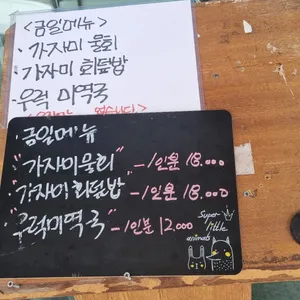 <금일메뉴>
· 가자미 물회
· 가자미 회덮밥
· 우럭 미역국
· 금일메뉴
· "가자미물회" - 1인분 18.000
· 가자미회덮밥 - 1인분 18.000
· 우럭미역국 - 1인분 12.000
Super
little
animals